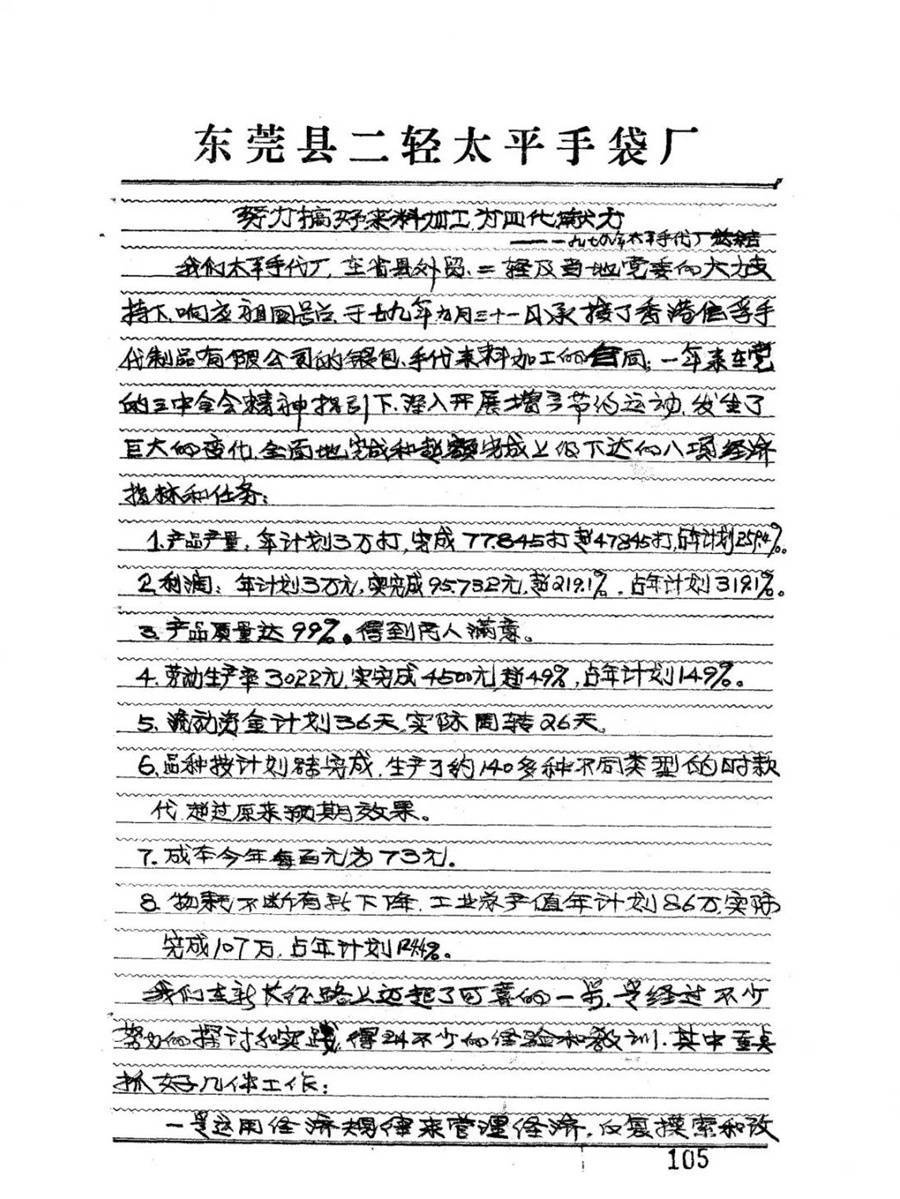 东莞县二轻太平手袋厂
努力搞好来料加工,为四化献力
———一九七九年太平手代厂总结
我们太平手代厂,在省县外贸、二轻及当地党委的大力支
持下,响应祖国号召,于七九年九月三十一日承接了香港信孚手
代制品有限公司的银包、手代来料加工的合同;一年来在党
的三中全会精神指引下,深入开展增产节约运动,发生了
巨大的变化,全面地完成和超额完成上级下达的八项经济
指标和任务:
1.产品产量,年计划3万打,完成77.845打超47845打,占年计划259.4%。
2.利润:年计划3万元,实完成95.732元,超219.1%,占年计划319.1%。
3.产品质量达99%。得到两人满意。
4.劳动生产率3022元,实完成4500元,超49%,占年计划149%。
5.流动资金计划36天,实际周转26天,
6.品种按计划完成,生产了约140多种不同类型的时款
代,超过原来预期效果。
7.成本今年每百元为73元。
8.物耗不断有新下降,工业总产值年计划86万,实际
完成107万,占年计划124.4%。
我们在新长征路上迈起了可喜的一步,是经过不少
努力的探讨和实践,得到不少的经验和教训,其中重点
抓好几件工作:
一是运用经济规律来管理经济,反复摸索和改
105